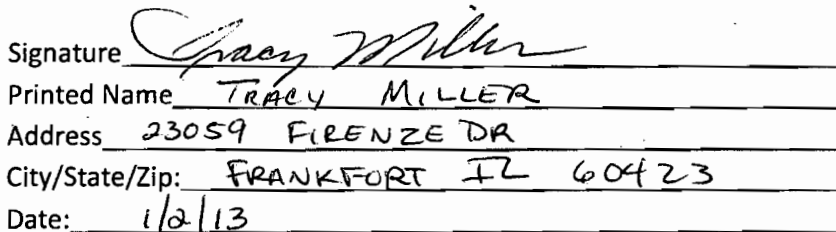 Signature Tracy Miller
Printed Name TRACY MILLER
Address 23059 FIRENZE DR
City/State/Zip: FRANKFORT IL 60423
Date: 1/2/13